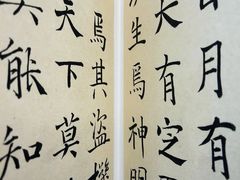 日月有
大有定
生焉神明
焉其盜機
天下莫
能知